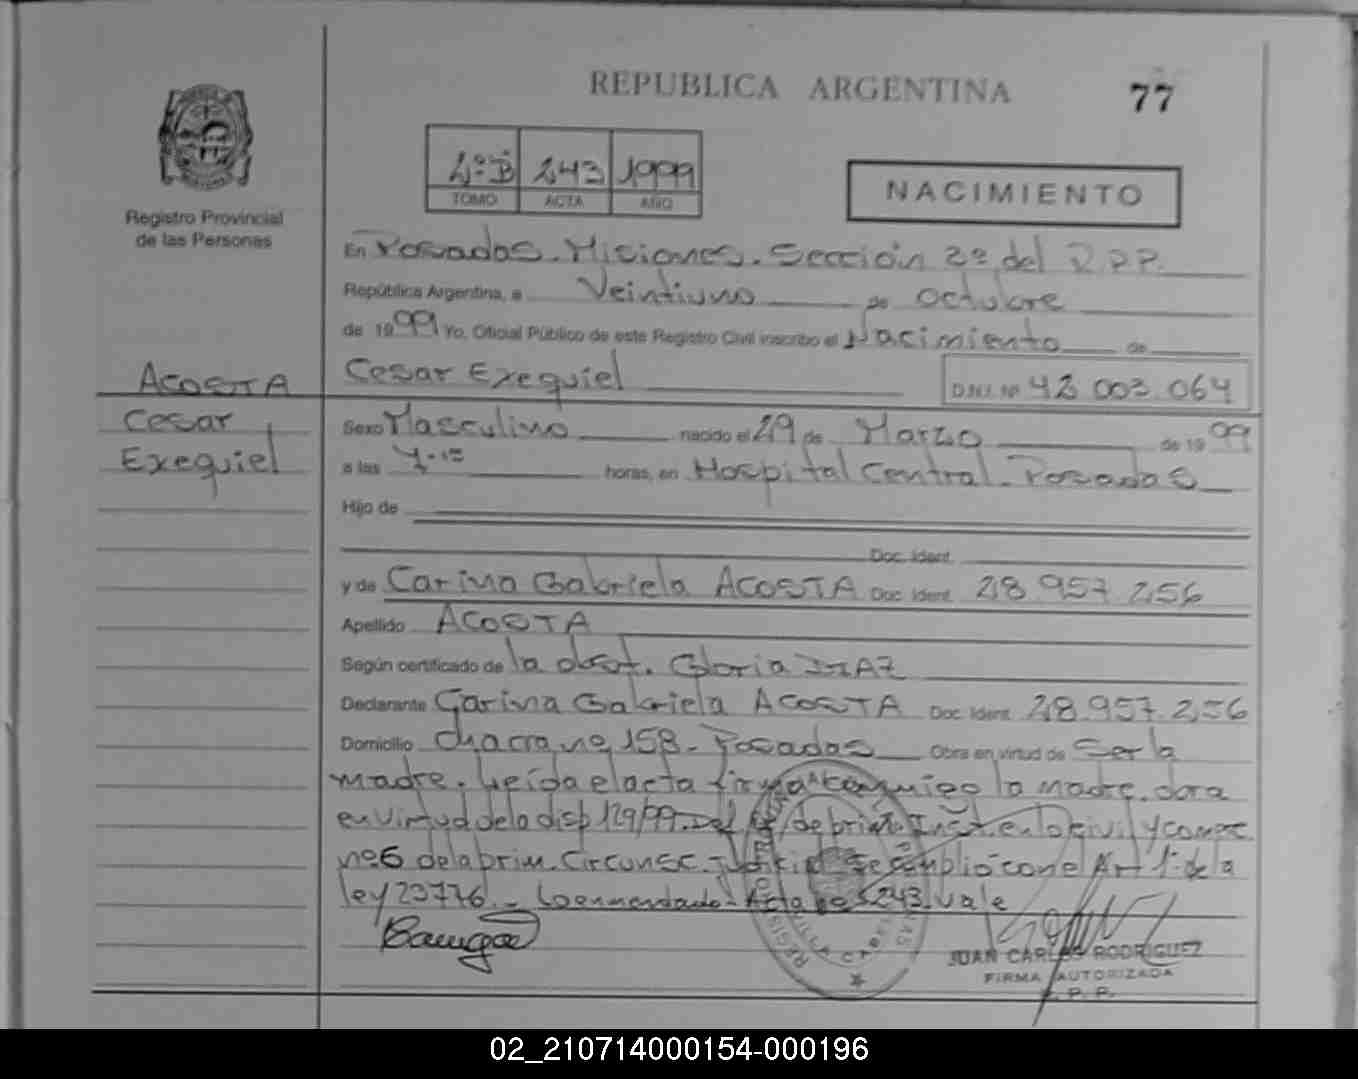 REPUBLICA ARGENTINA
77
2º B 243 1999
TOMO ACTA AÑO
NACIMIENTO
Registro Provincial
de las Personas
En Posadas. Misiones. Sección 2º del R.P.P.
República Argentina, a Veintiuno de Octubre
de 1999 Yo, Oficial Público de este Registro Civil inscribo el Nacimiento de
ACOSTA
Cesar
Exequiel
Cesar Exequiel D.N.I. Nº 42 003.064
Sexo Masculino nacido el 29 de Marzo de 1999
a las horas, en Hospital Central. Posadas
Hijo de
Doc. Ident.
y de Carina Gabriela ACOSTA Doc. Ident. 28 957 256
Apellido ACOSTA
Según certificado de la doct. Gloria DIAZ
Declarante Carina Gabriela ACOSTA Doc. Ident. 28.957.256
Domicilio chacra nº 158. Posadas Obra en virtud de ser la
madre. Leída el acta firma conmigo la madre. obra
en virtud de la disp 129/99. Del de prim. Inst. en lo civil y comerc.
nº 6 de la prim. Circunsc. Judicial Se cumplió con el Art 1º de la
ley 23776. Lo enmendado- Acta 243. vale
JUAN CARLOS RODRIGUEZ
FIRMA AUTORIZADA
R. P. P.
02_210714000154-000196